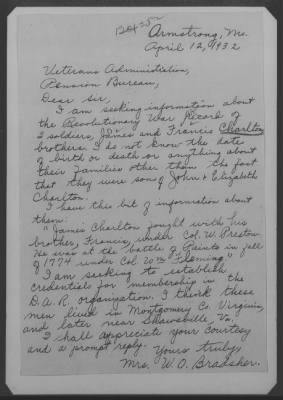 Armstrong, Mo.
April 12, 1932
Veterans Administration,
Pension Bureau,
Dear Sir,
I am seeking information about
the Revolutionary War Record of
2 soldiers, James and Francis Charlton,
brothers. I do not know the dates
of birth or death or anything about
their families other than the fact
that they were sons of John & Elizabeth
Charlton.
I have this bit of information about
them:
"James Charlton fought with his
brother, Francis, under Col. W. Preston.
He was at the battle of Points in fall
of 1774 under Col Wm Fleming."
I am seeking to establish
credentials for membership in the
D.A.R. organization. I think these
men lived in Montgomery Co. Virginia,
and later near Shawsville, Va.
I shall appreciate your courtesy
and a prompt reply.
Yours truly,
Mrs. W. O. Bradsher.